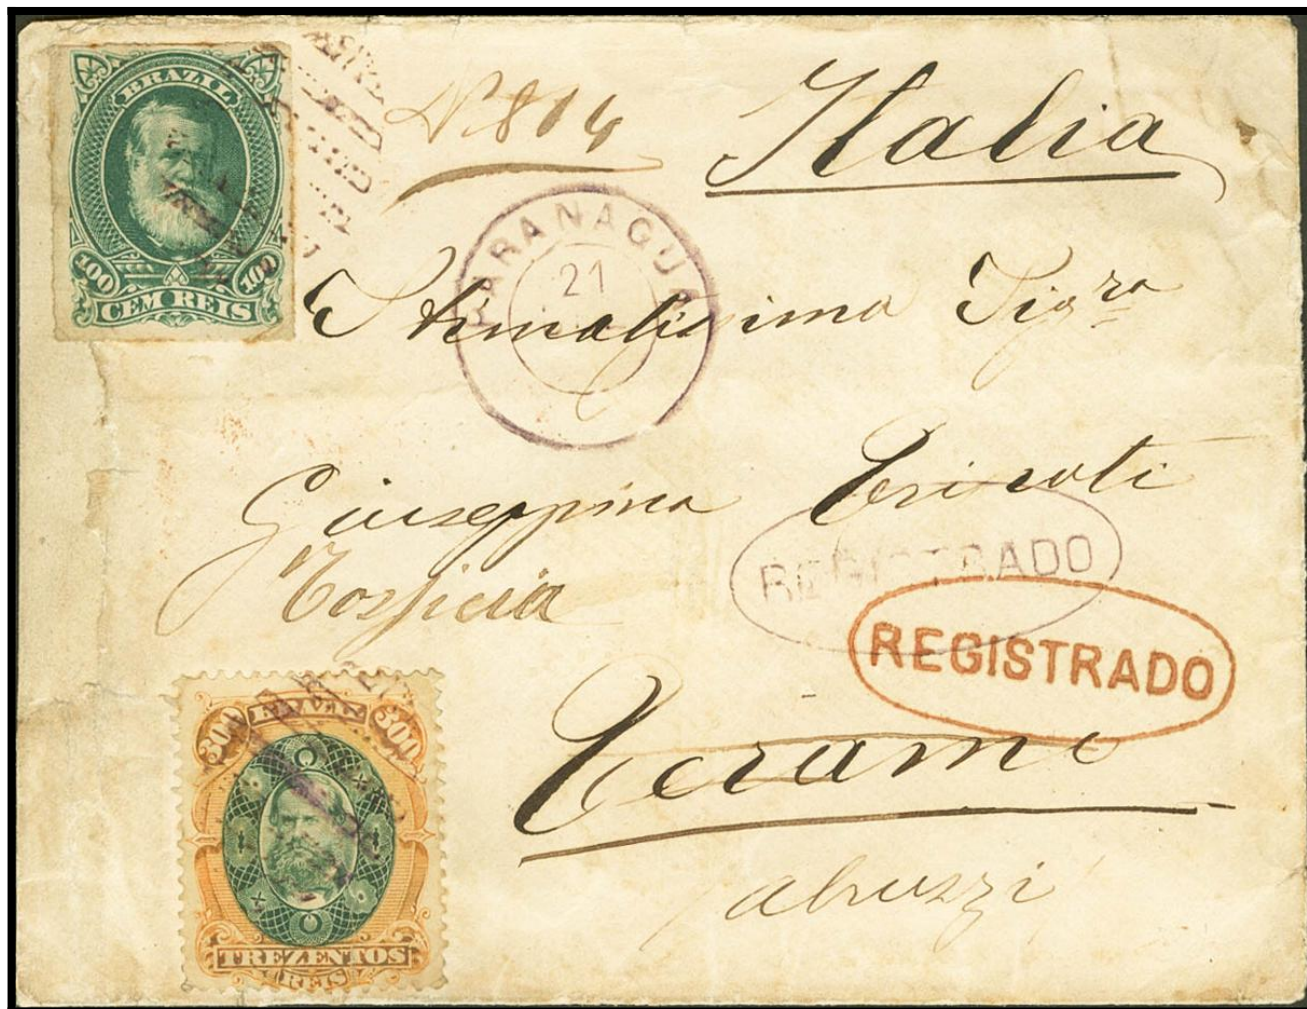 BRAZIL
100 100
CEM REIS
N 814
Italia
PARANAGUA
21
Stimatissima Sigra
Giuseppina
REGISTRADO
Tossicia
REGISTRADO
Teramo
abruzzi
300 300
TREZENTOS
REIS